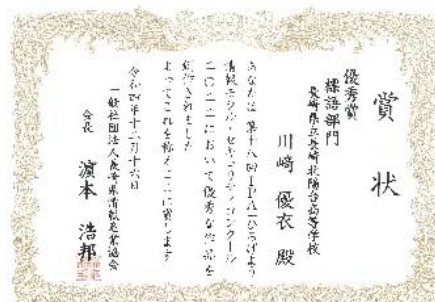 賞状
優秀賞
標語部門
長崎県立長崎北陽台高等学校
川﨑 優衣 殿
あなたは 第十八回IPA「ひろげよう
情報モラル・セキュリティコンクール」
二〇二二において優秀な作品を
創作されました
よってこれを称えここに賞します
令和四年十二月十六日
一般社団法人長崎県情報産業協会
会長 濵本 浩邦